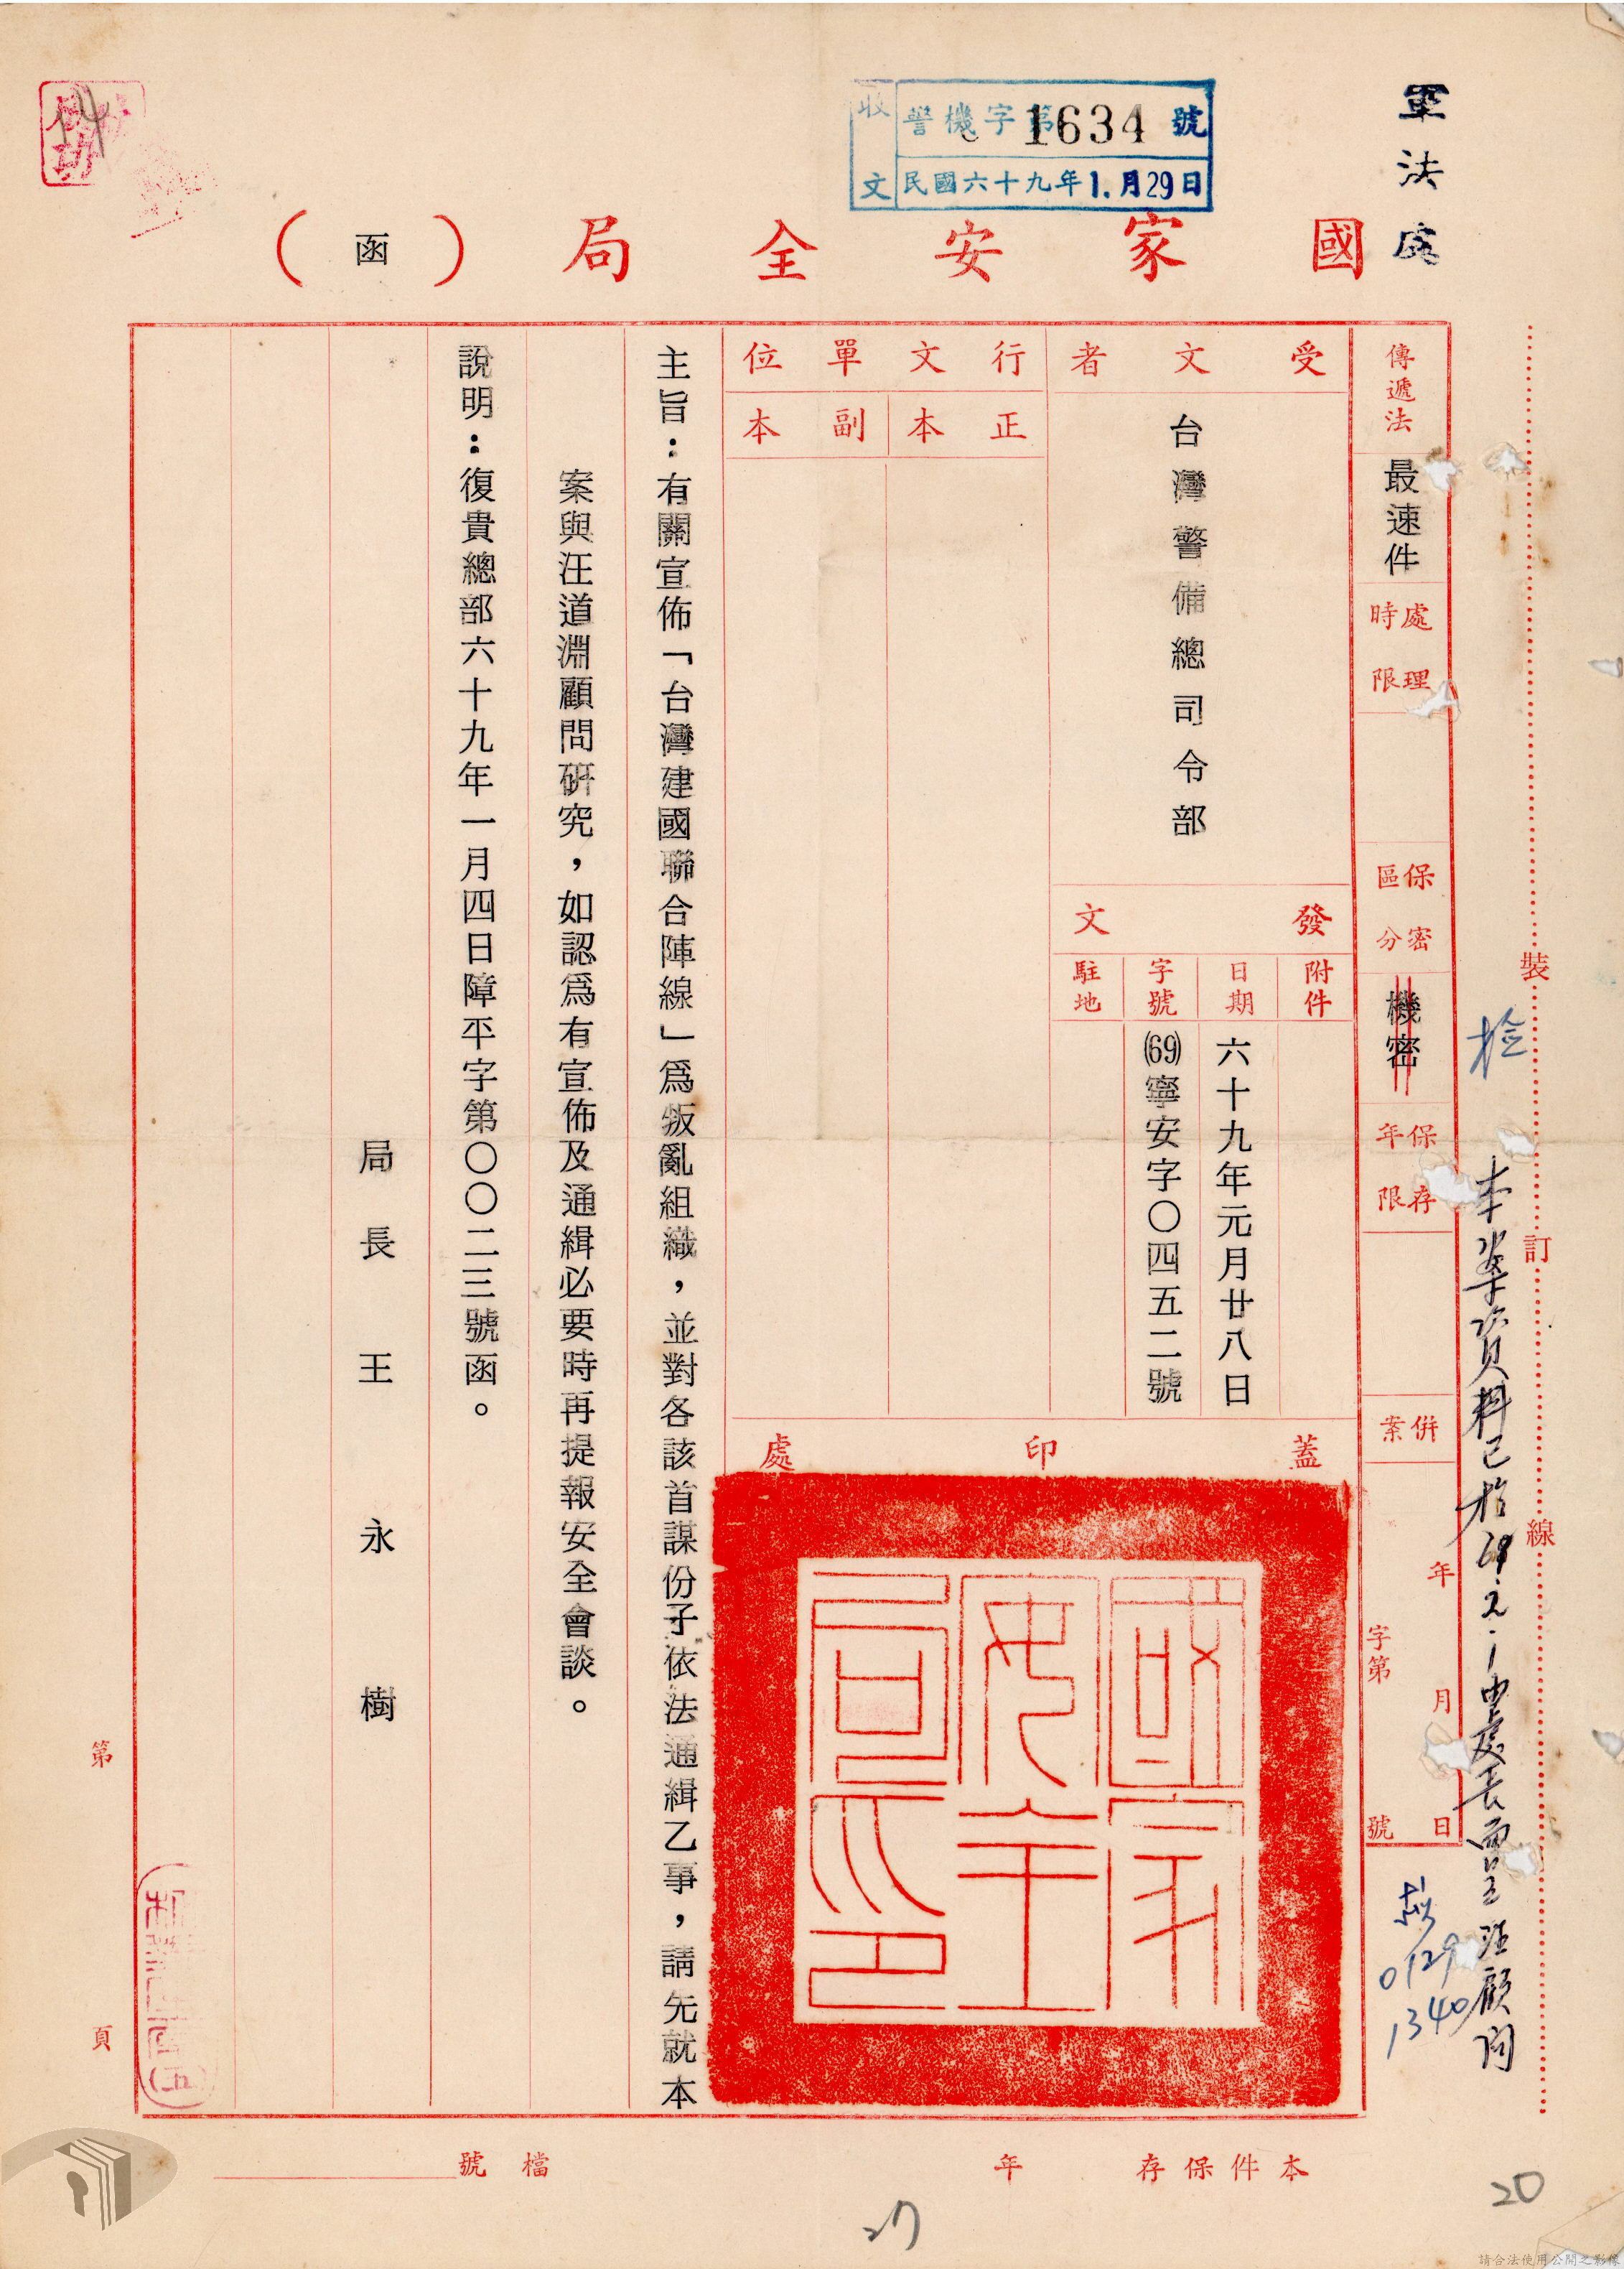 軍法處
收文
警機字第1634號
民國六十九年1.月29日
國家安全局（函）
傳遞法
最速件
處理時限
保密區分
機密
保存年限
併案
年月日
字第號
受文者
台灣警備總司令部
發文
附件
日期
六十九年元月廿八日
字號
(69)寧安字〇四五二號
駐地
行文單位
正本
副本
蓋印處
國家安全局印
主旨：有關宣佈「台灣建國聯合陣線」為叛亂組織，並對各該首謀份子依法通緝乙事，請先就本
案與汪道淵顧問研究，如認為有宣佈及通緝必要時再提報安全會談。
說明：復貴總部六十九年一月四日障平字第〇〇二三號函。
局長王永樹
裝訂線
本案資料已於69.2.1由處長面呈汪顧問
0129
1340
第頁
(五)
本件保存年
檔號
27
20
請合法使用公開之影像